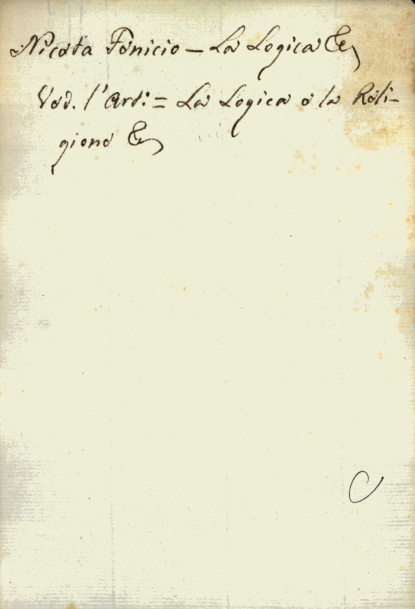 Niceta Fenicio – La Logica &c
Ved. l'Art: = La Logica e la Reli-
gione &c